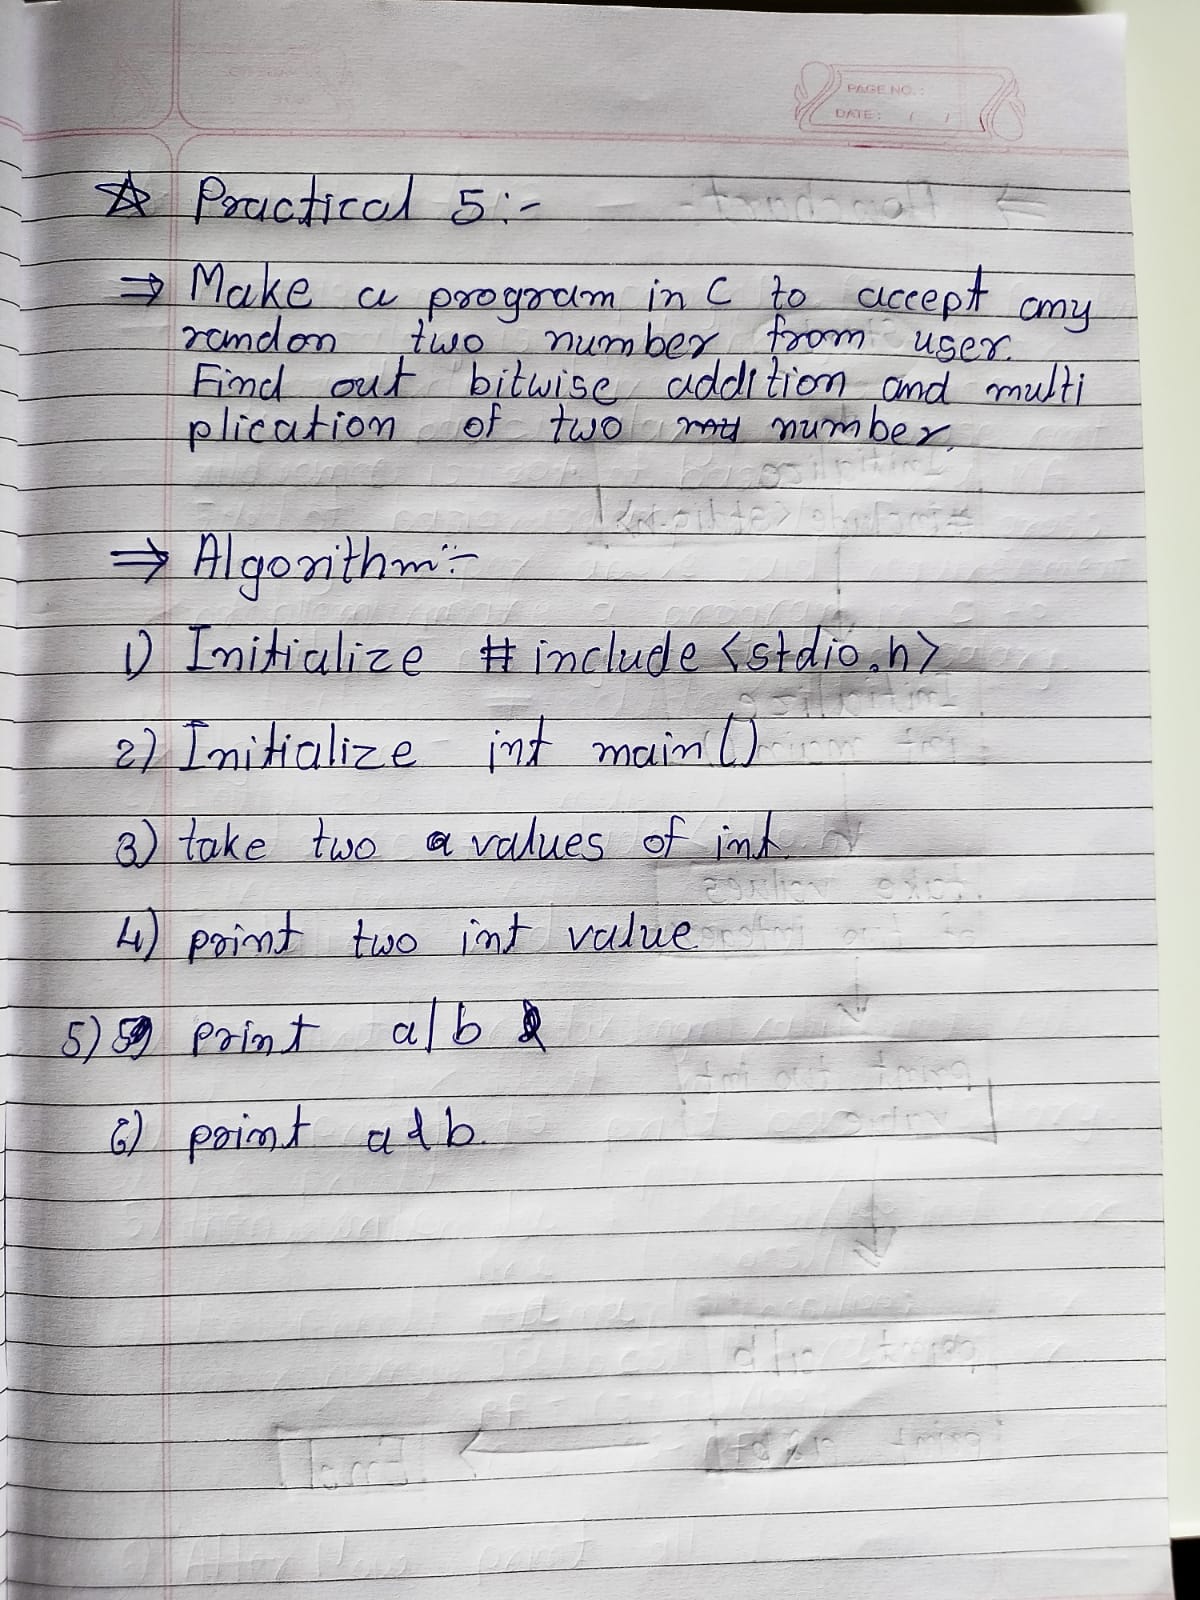 PAGE NO.:
DATE: / /
☆ Practical 5:-
⇒ Make a program in C to accept any
randon two number from user.
Find out bitwise addition and multi
plication of two number.
⇒ Algorithm:-
1) Initialize #include <stdio.h>
2) Initialize int main()
3) take two values of int
4) print two int value
5) print a|b
6) print a&b.